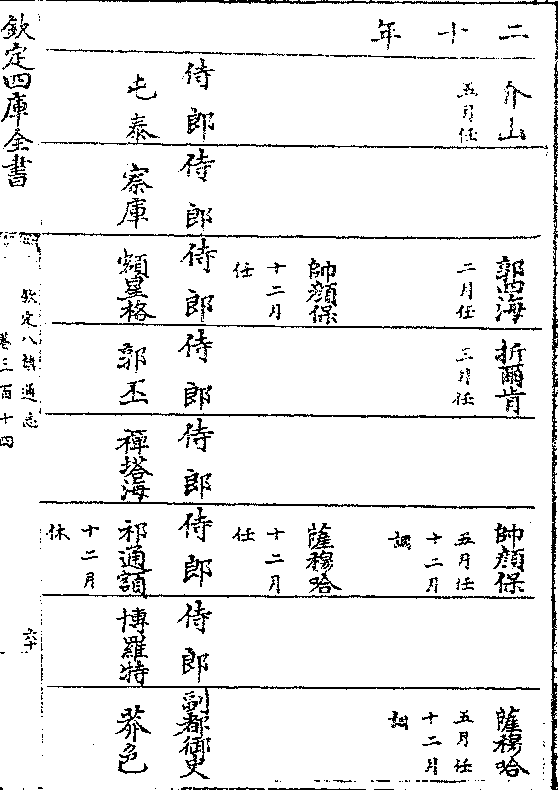 二十年
介山
五月任
侍郎
屯泰
侍郎
察庫
郭四海
二月任
帥顏保
十二月
任
侍郎
額星格
折爾肯
三月任
侍郎
郭丕
侍郎
禪塔海
帥顏保
五月任
十二月
調
薩穆哈
十二月
任
侍郎
祁通額
十二月
休
侍郎
博羅特
薩穆哈
五月任
十二月
調
副都御史
莽色
欽定四庫全書
欽定八旗通志
卷三百十四
六十